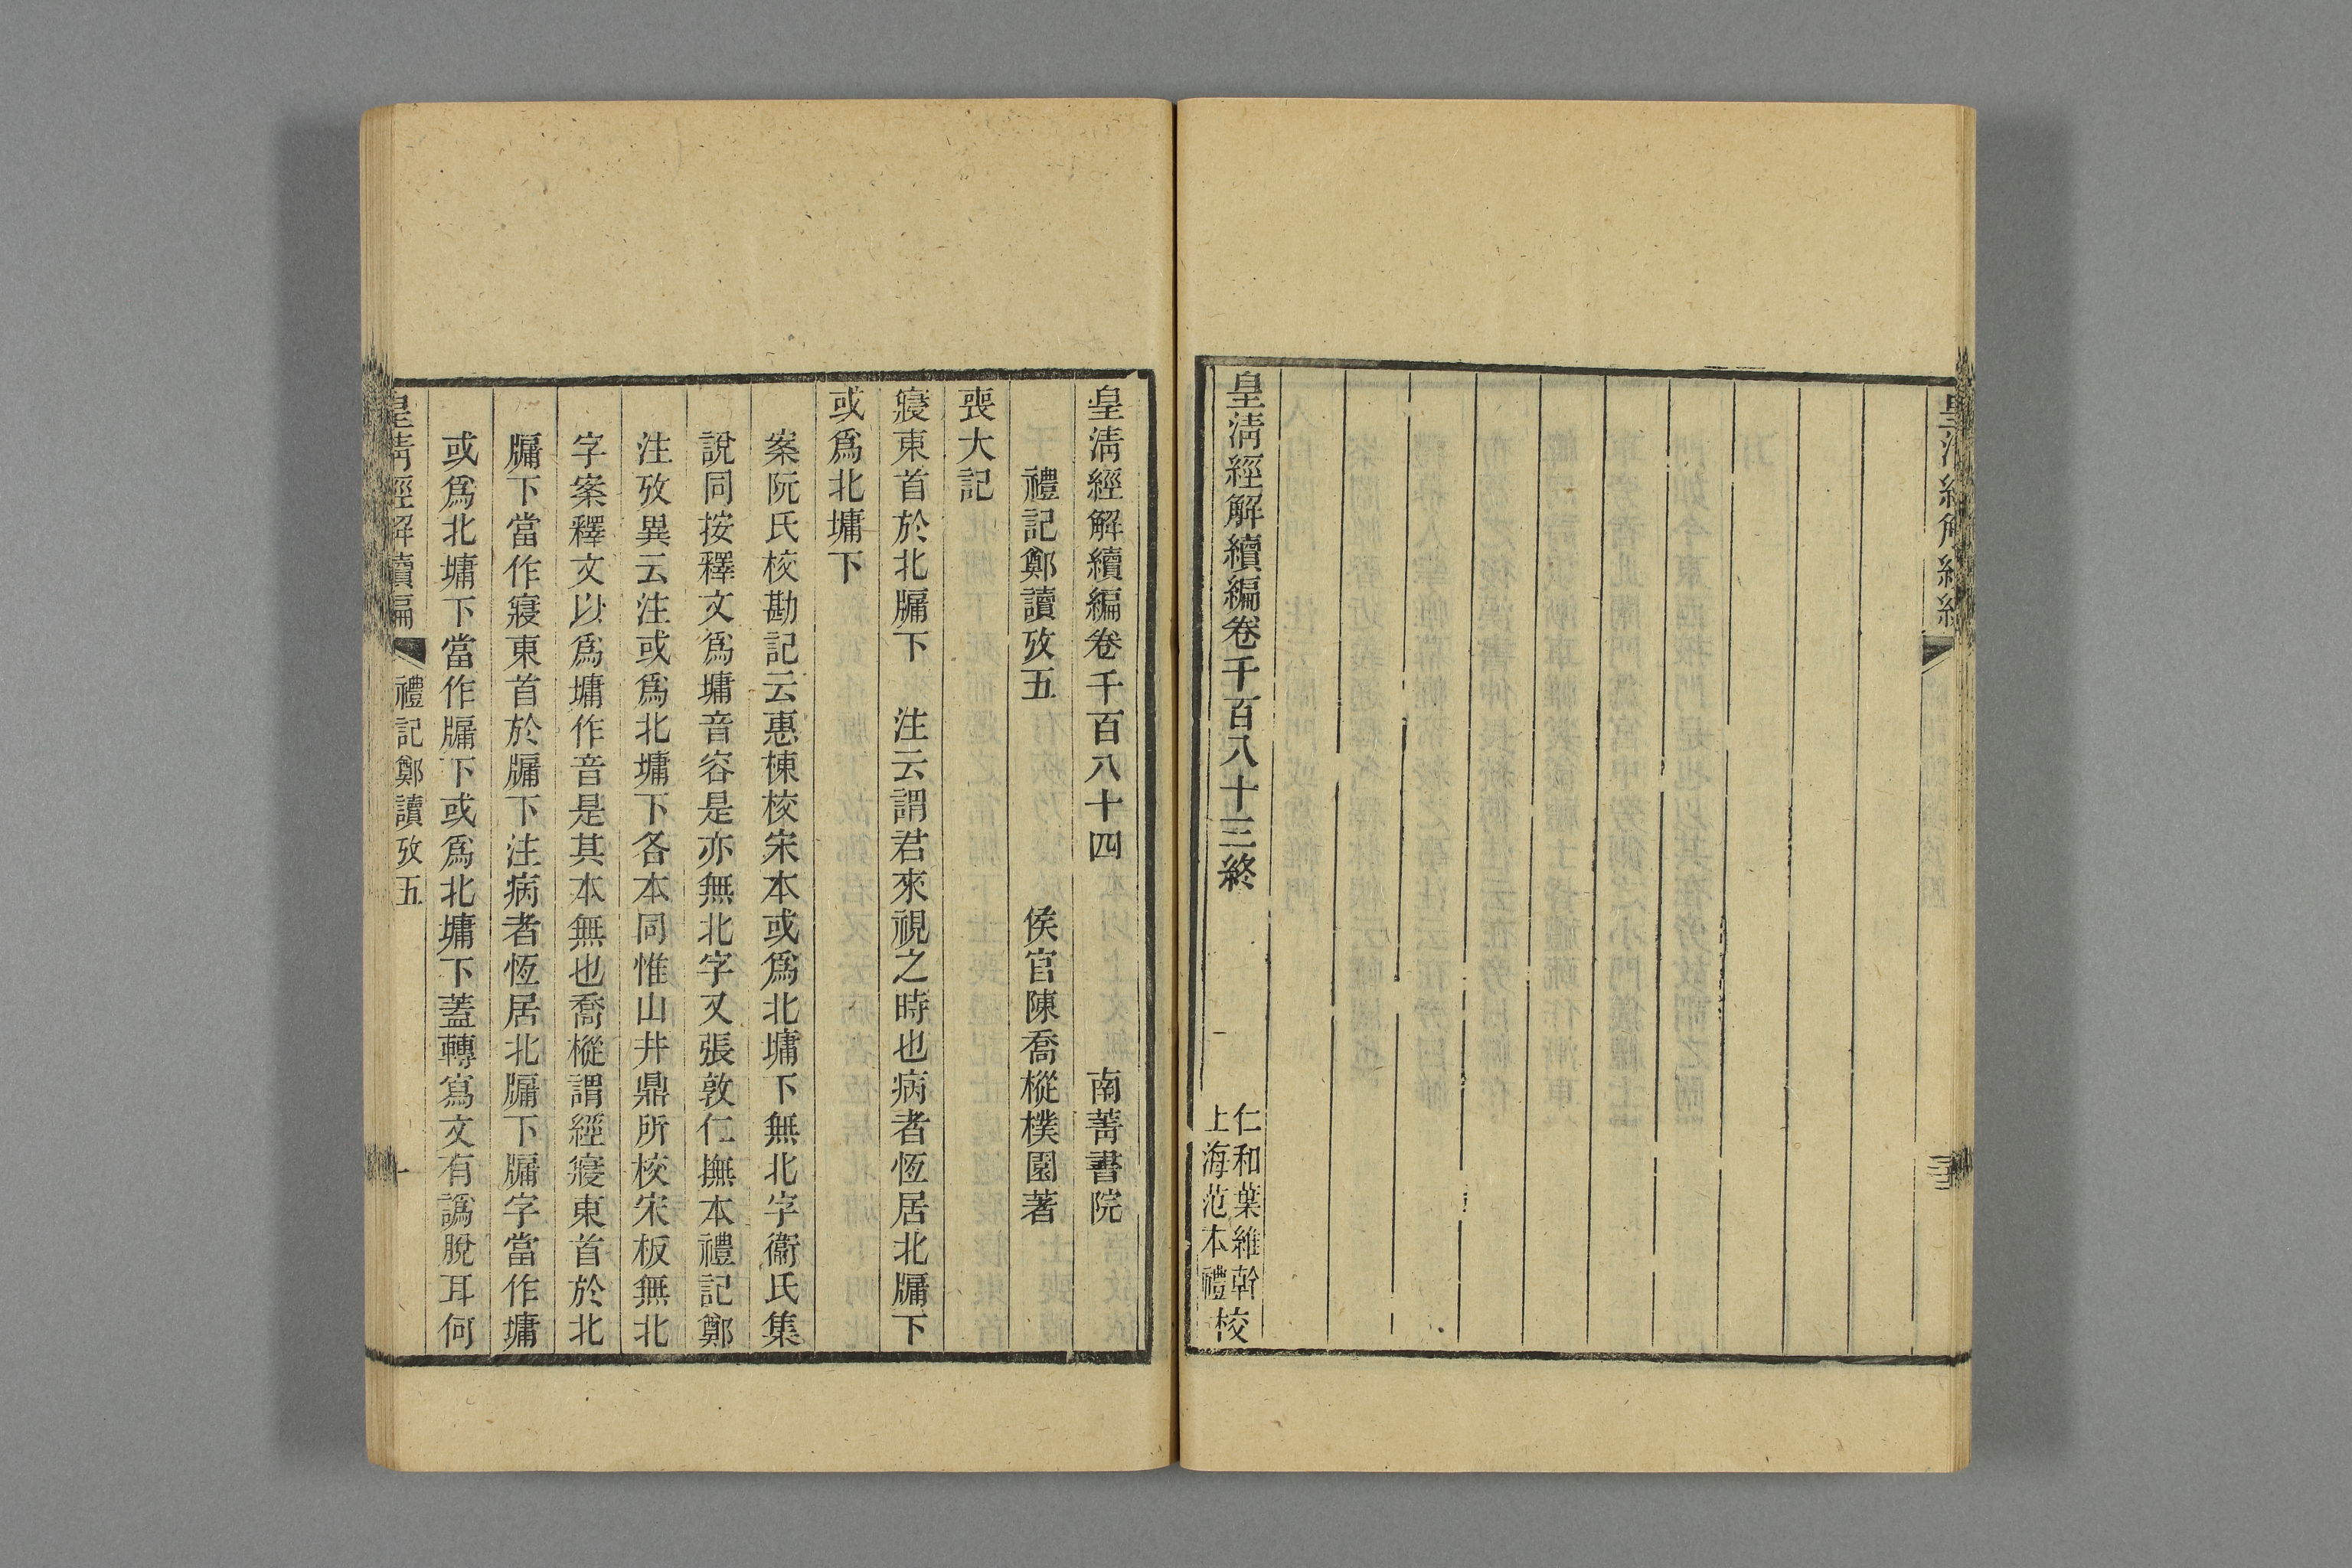 皇清經解續編卷千百八十三終
仁和葉維幹
上海范本禮
校
皇清經解續編卷千百八十四
南菁書院
禮記鄭讀攷五
侯官陳喬樅樸園著
喪大記
寢東首於北牖下　注云謂君來視之時也病者恆居北牖下
或爲北墉下
案阮氏校勘記云惠棟校宋本或爲北墉下無北字衞氏集
說同按釋文爲墉音容是亦無北字又張敦仁撫本禮記鄭
注攷異云注或爲北墉下各本同惟山井鼎所校宋板無北
字案釋文以爲墉作音是其本無也喬樅謂經寢東首於北
牖下當作寢東首於牖下注病者恆居北牖下牖字當作墉
或爲北墉下當作牖下或爲北墉下蓋轉寫文有譌脫耳何
皇清經解續編
禮記鄭讀攷五
一